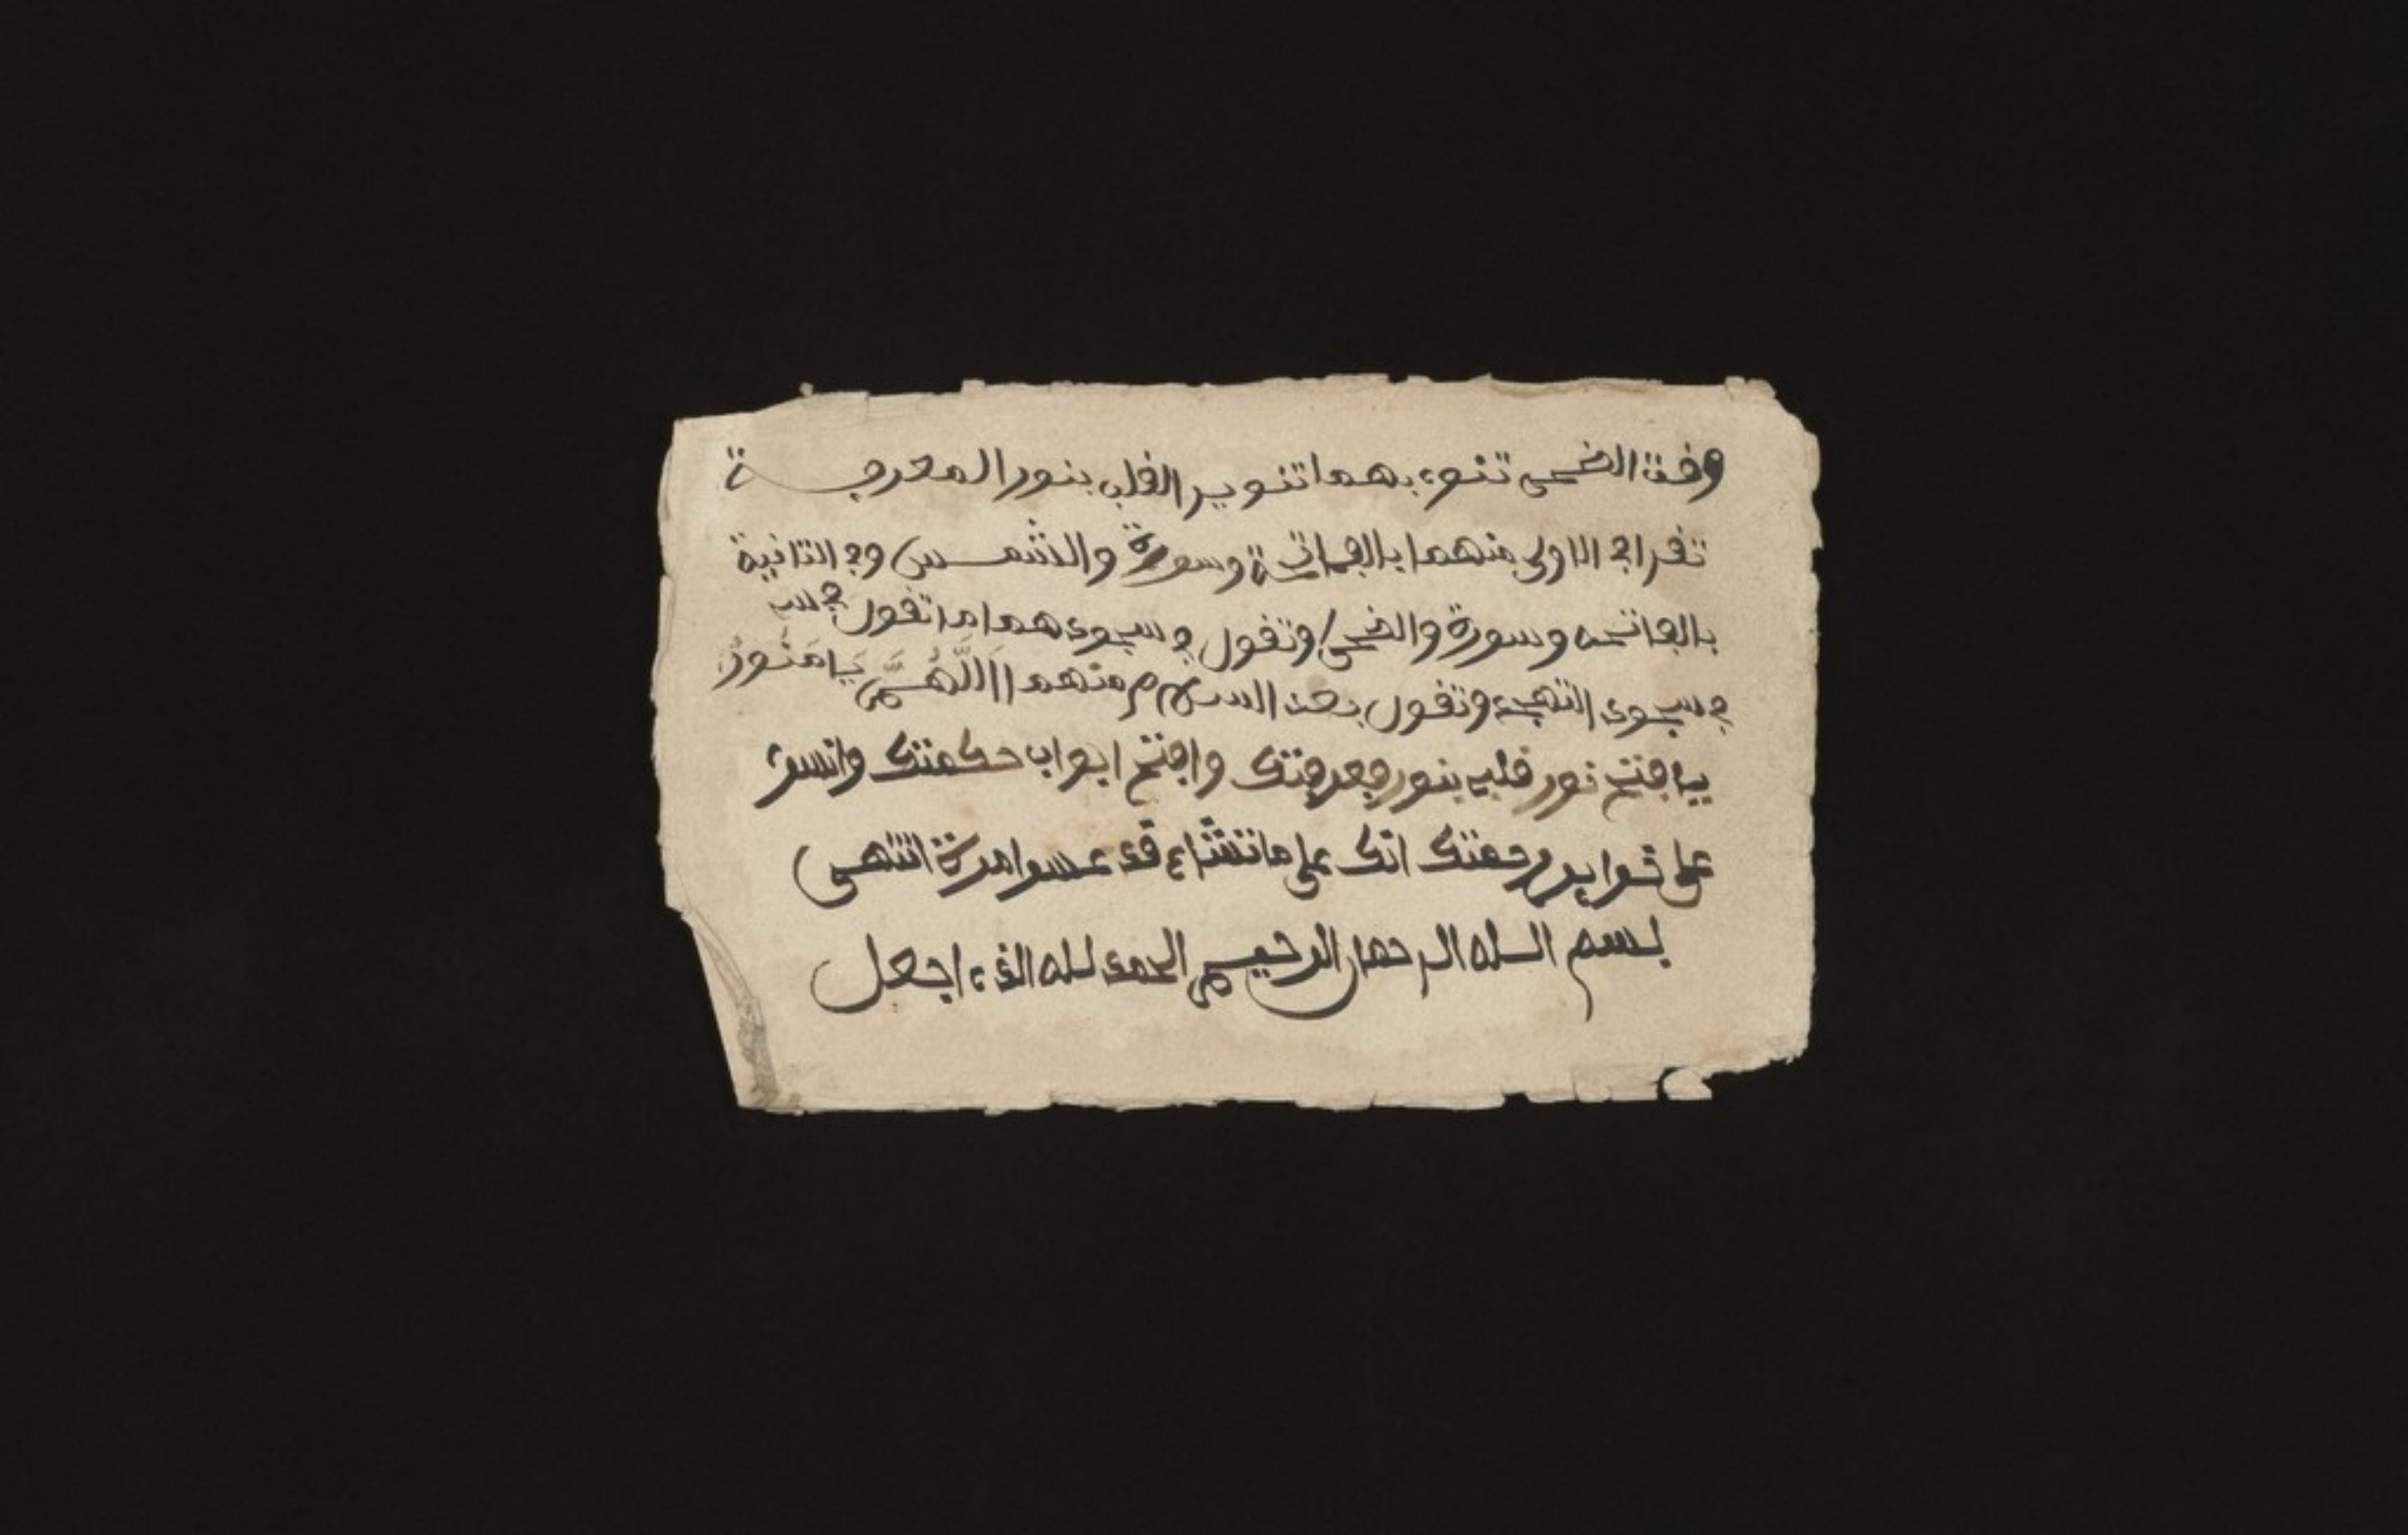 وقت الضحى تنوء بهما تنوير القلب بنور المعرفـــة
تقرا في الاولى منهما بالفاتحة وسورة والشمس وفي الثانية
بالفاتحه وسورة والضحى وتقول في سجودهما ما تقول في سـ
في سجود التهجد وتقول بعد السلام منهما اَاللَّهُمَّ يَا مُنَوِّرُ
يا فتح نور قلبي بنور معرفتك وافتح ابواب حكمتك وانشر
على خزاين رحمتك انك على ما تشاء قد
بسم الله الرحمان الرحيم الحمد لله الذي اجعل